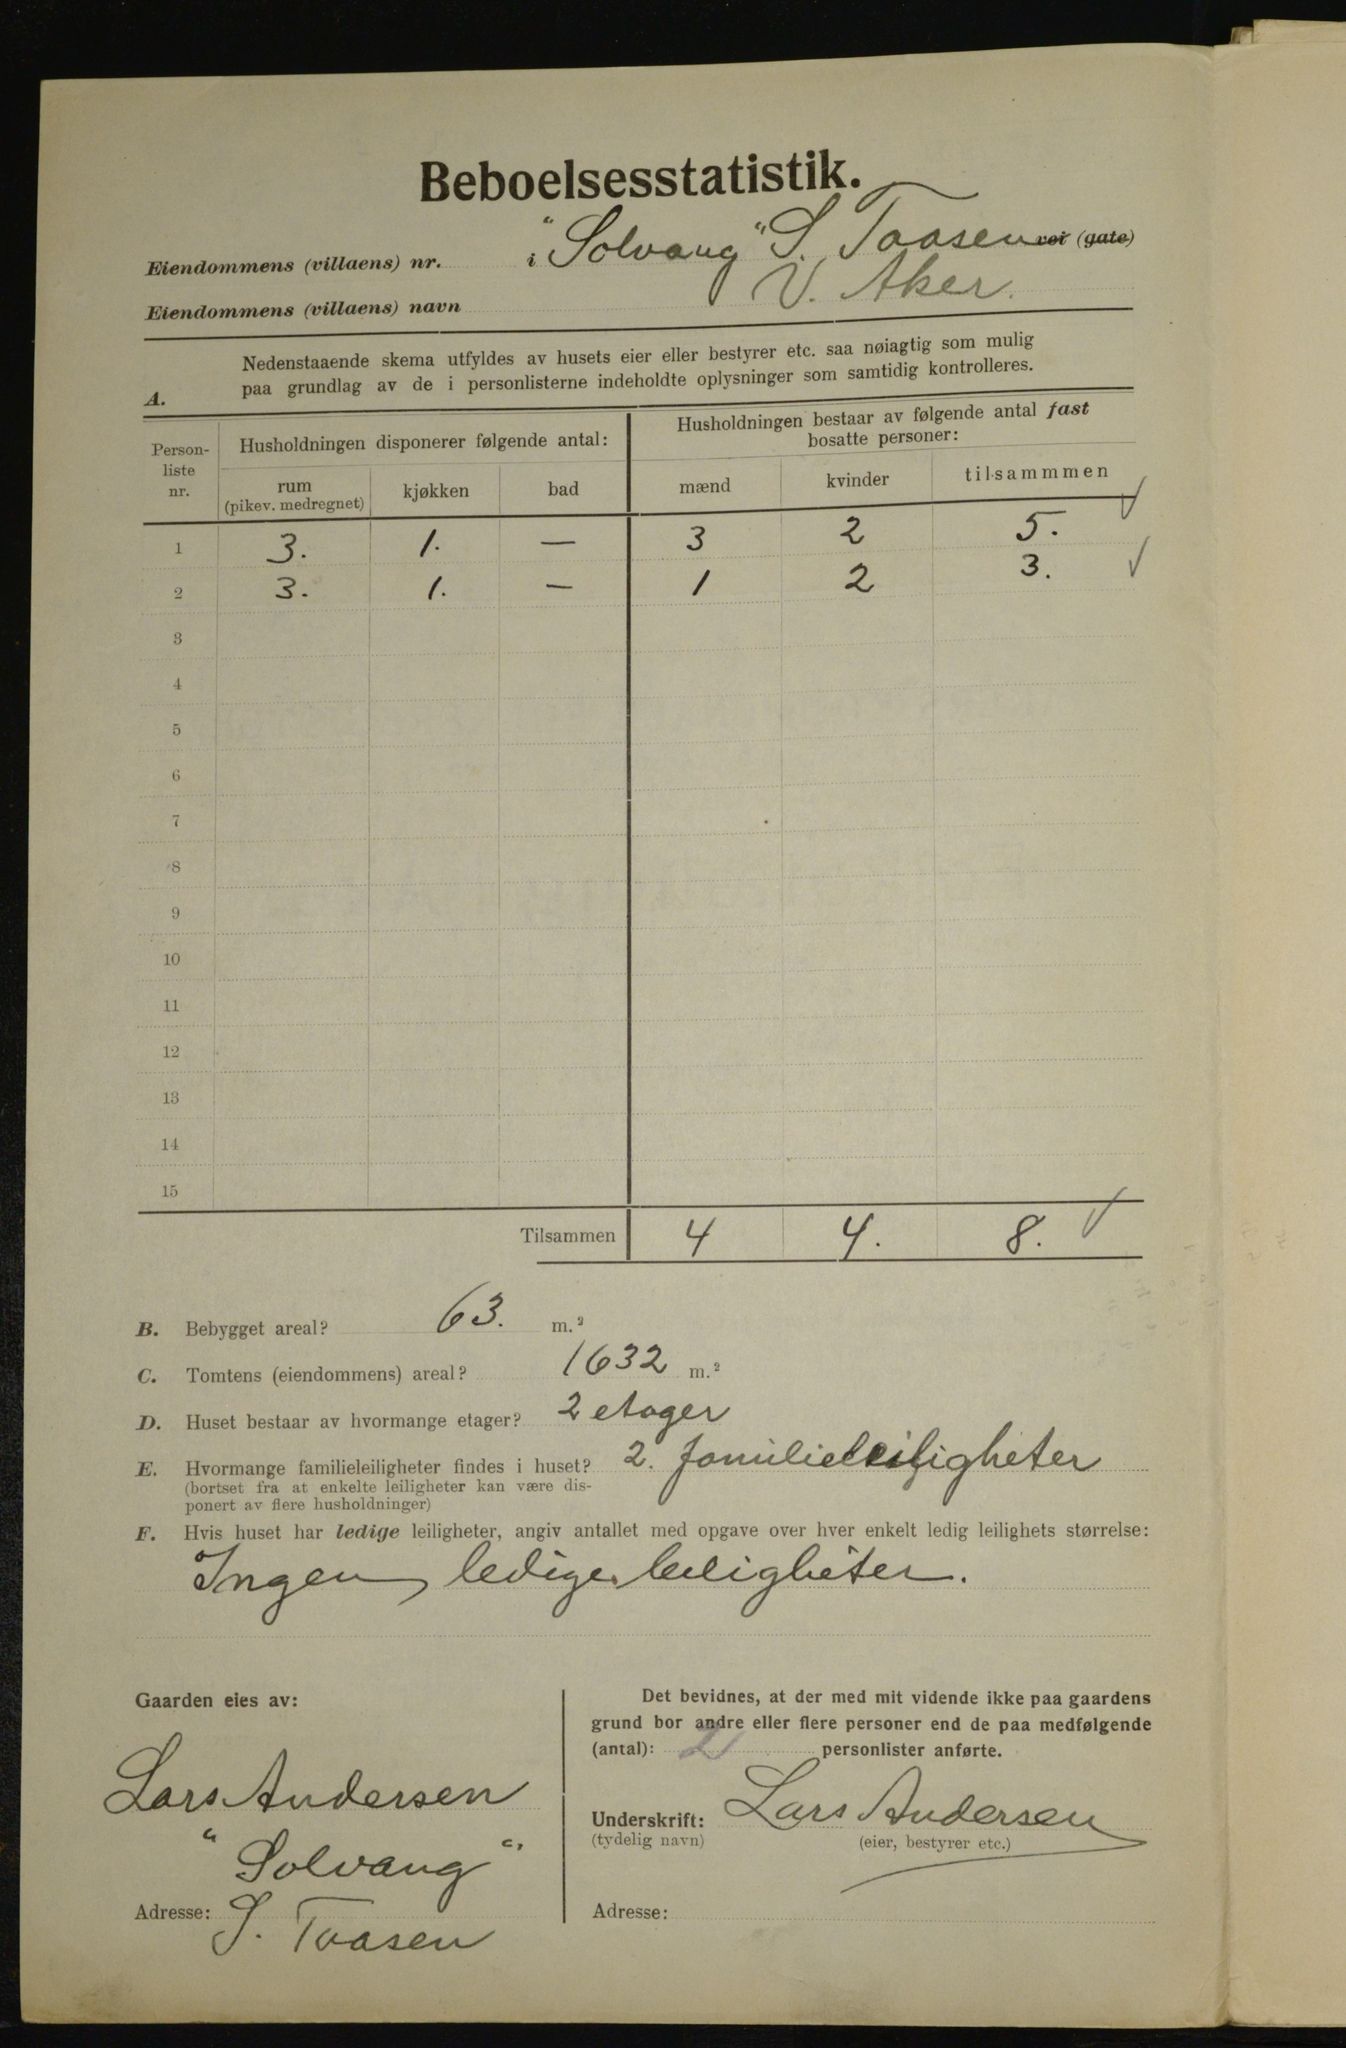 Beboelsesstatistik.
Eiendommens (villaens) nr. i "Solvang" S. Taasen vei (gate)
Eiendommens (villaens) navn V. Aker.
Nedenstaaende skema utfyldes av husets eier eller bestyrer etc. saa nøiagtig som mulig
paa grundlag av de i personlisterne indeholdte oplysninger som samtidig kontrolleres.
A.
Person-
liste
nr.
Husholdningen disponerer følgende antal:
Husholdningen bestaar av følgende antal fast
bosatte personer:
rum
(pikev. medregnet)
kjøkken
bad
mænd
kvinder
tilsammmen
1 3. 1. — 3 2 5. √
2 3. 1. — 1 2 3. √
3
4
5
6
7
8
9
10
11
12
13
14
15
Tilsammen 4 4. 8. √
B. Bebygget areal? 63. m.²
C. Tomtens (eiendommens) areal? 1632 m.²
D. Huset bestaar av hvormange etager? 2 etager
E. Hvormange familieleiligheter findes i huset? 2. familieleiligheter
(bortset fra at enkelte leiligheter kan være dis-
ponert av flere husholdninger)
F. Hvis huset har ledige leiligheter, angiv antallet med opgave over hver enkelt ledig leilighets størrelse:
Ingen ledige leiligheter.
Gaarden eies av:
Lars Andersen
"Solvang"
Adresse: S. Taasen
Det bevidnes, at der med mit vidende ikke paa gaardens
grund bor andre eller flere personer end de paa medfølgende
(antal): 2 personlister anførte.
Underskrift: Lars Andersen
(tydelig navn) (eier, bestyrer etc.)
Adresse: